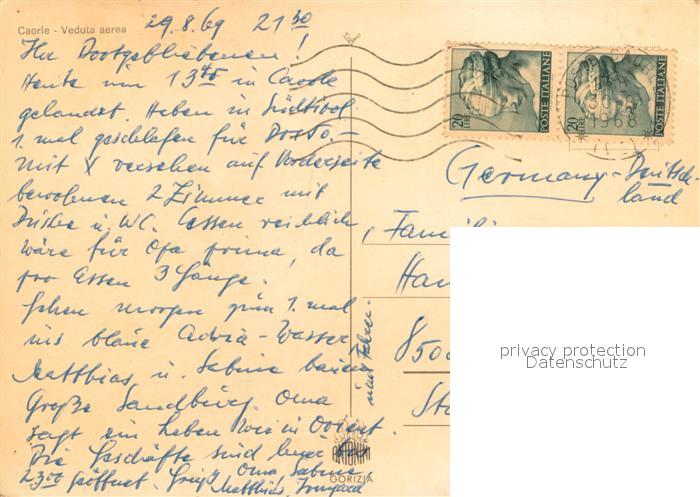 Caorle - Veduta aerea
29.8.69 21 30
Ihr Dortgebliebenen!
Heute um 13 in Caorle
gelandet. Haben in Südtirol
1 mal geschlafen für
mit X versehen auf Vorderseite
bewohnen 2 Zimmer mit
Dusche u. WC. Essen reichlich,
wäre für Opa prima, da
pro Essen 3 Gänge.
Gehen morgen zum 1. mal
ins blaue Adria-Wasser,
Matthias u. Sabine bauen
Große Sandburg. Oma
sagt ein Leben wie in Orient.
Die Geschäfte sind hier bis
23.00 geöffnet. Gruß Oma Sabine
Matthias, Irmgard
GORIZIA
20 LIRE POSTE ITALIANE
20 LIRE POSTE ITALIANE
Germany-Deutsch-
land
Familie
Han
850
privacy protection
Datenschutz